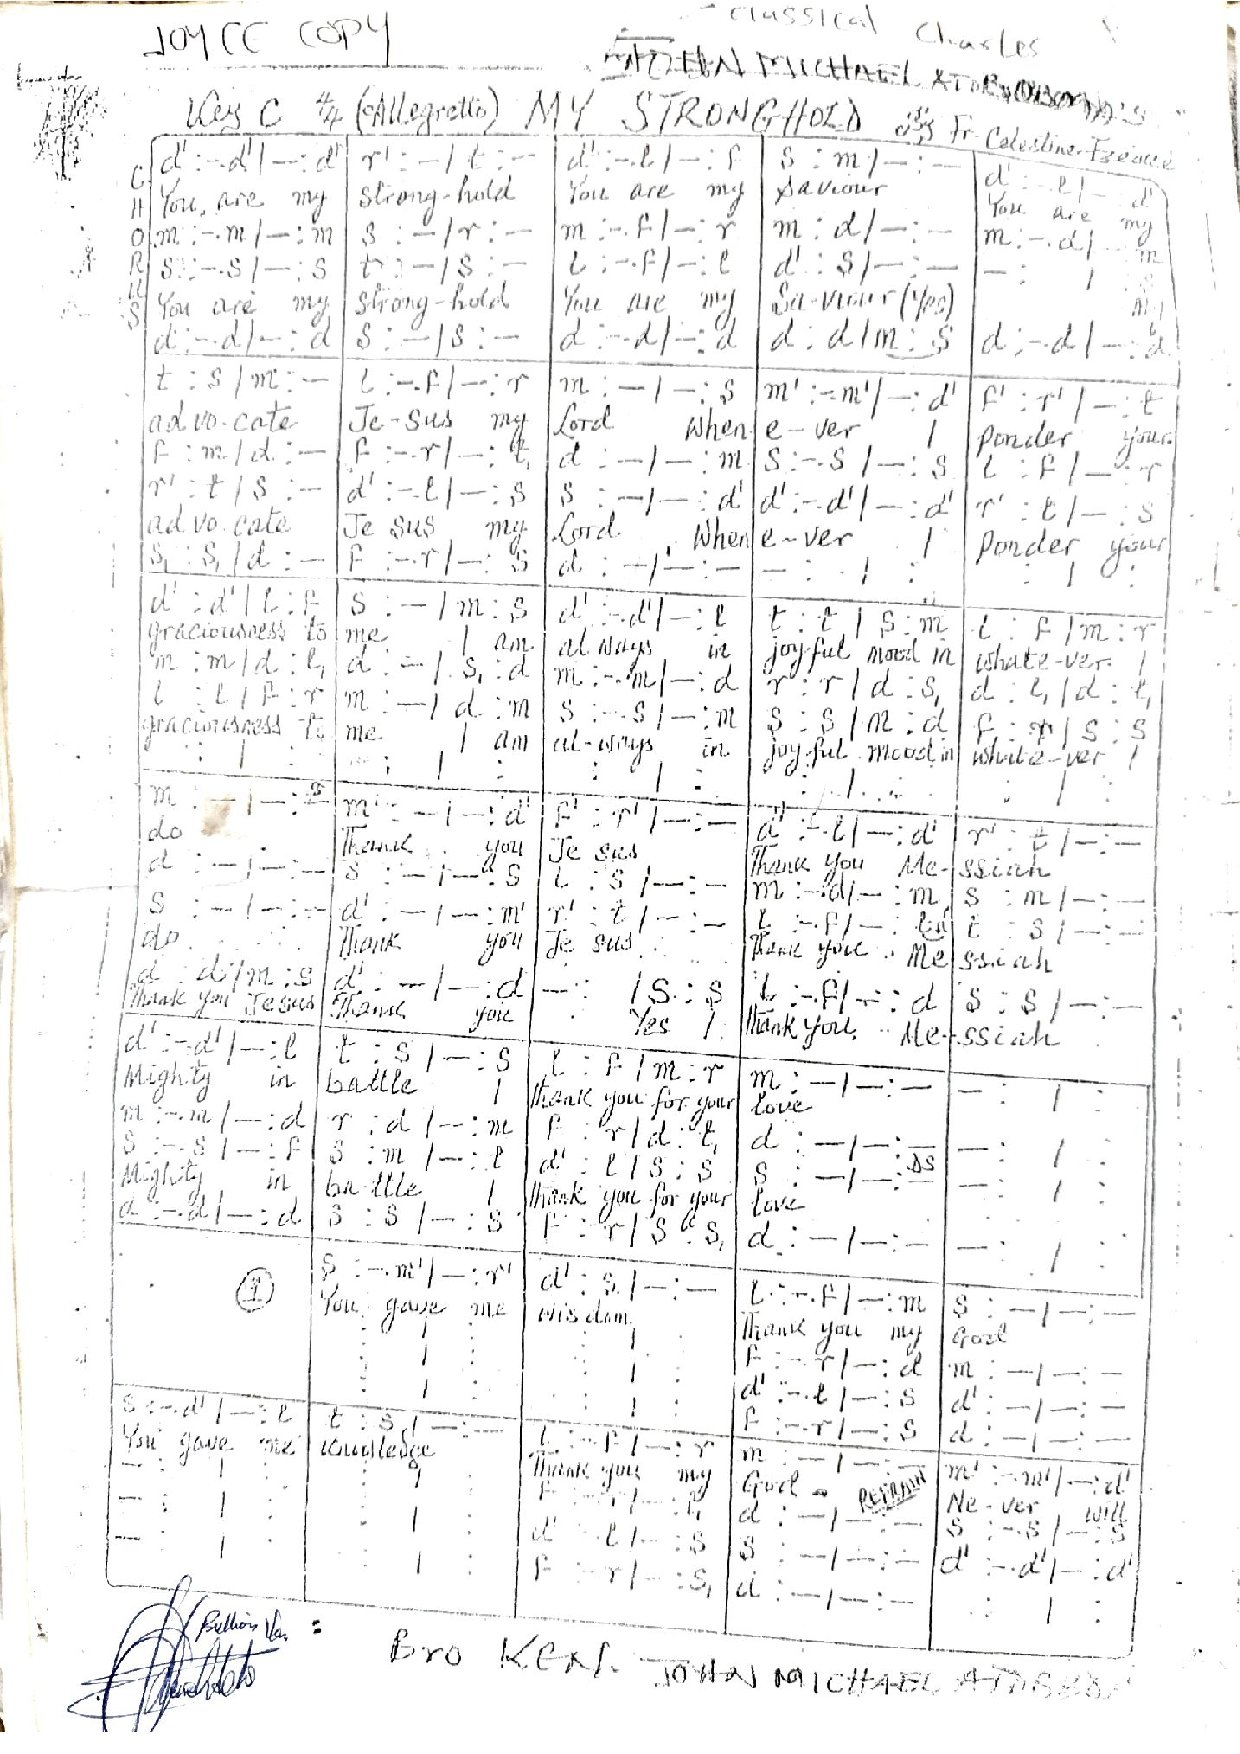 JOYCE COPY
classical Charles
JOHN MICHAEL
Key C 4/4 (Allegretto) MY STRONGHOLD Fr. Celestine
CHORUS
d' :-.d'/ — : d' | r' : — / t : — | d' :-.l / — : f | s : m / — : — | d' :-.l / — : d'
You are my | strong-hold | You are my | Saviour | You are my
m :-.m / — : m | s : — / r : — | m :-.f / — : r | m : d / — : — | m :-.d / — : m
s :-.s / — : s | t : — / s : — | l :-.f / — : l | d' : s / — : — | — : / : s
You are my | strong-hold | You are my | Sa-viour (Yes)
d :-.d / — : d | s : — / s : — | d :-.d / — : d | d : d / m : s | d :-.d / — : d
t : s / m : — | l :-.f / — : r | m : — / — : s | m' :-.m' / — : d' | f' : r' / — : t
advo-cate | Je-sus my | Lord When | e-ver I | Ponder your
f : m / d : — | f :-.r / — : t, | d : — / — : m | s :-.s / — : s | l : f / — : r
r' : t / s : — | d' :-.l / — : s | s : — / — : d' | d' :-.d' / — : d' | r' : t / — : s
advo-cate | Jesus my | Lord When | e-ver I | Ponder your
s, : s, / d : — | f :-.r / — : s | d : — / — : — | — : / : | : / :
d' : d' / l : f | s : — / m : s | d' :-.d' / — : l | t : t / s : m | l : f / m : r
graciousness to | me I am | always in | joyful mood in | whate-ver I
m : m / d : l, | d : — / s, : d | m :-.m / — : d | r : r / d : s, | d : l, / d : t,
l : l / f : r | m : — / d : m | s :-.s / — : m | s : s / m : d | f : / s : s
graciousness to | me I am | al-ways in | joy-ful mood in | whate-ver I
: / : | : / : | : / : | : / : | : / :
m : — / — : | m' : — / — : d' | f' : r' / — : — | d' :-.l / — : d' | r' : t / — : —
do | Thank you | Jesus | Thank you Me- | ssiah
d : — / — : — | s : — / — : s | l : s / — : — | m :-.d / — : m | s : m / — : —
s : — / — : — | d' : — / — : m' | r' : t / — : — | l :-.f / — : | t : s / — : —
do | Thank you | Jesus | Thank you Me | ssiah
d : d / m : s | d' : — / — : d | — : / s : s | l :-.f / — : d | s : s / — : —
Thank you Jesus | Thank you | Yes I | Thank you Me- | ssiah
d' :-.d' / — : l | t : s / — : s | l : f / m : r | m : — / — : — | — : / :
Mighty in | battle I | thank you for your | love
m :-.m / — : d | r : d / — : m | f : r / d : t, | d : — / — : — | — : / :
s :-.s / — : f | s : m / — : l | d' : l / s : s | s : — / — : — DS | — : / :
Mighty in | battle I | thank you for your | love
d :-.d / — : d | s : s / — : s | f : r / s : s, | d : — / — : — | — : / :
1 | s :-.m' / — : r' | d' : s / — : — | l :-.f / — : m | s : — / — : —
You gave me | wisdom | Thank you my | God
: / : | : / : | f :-.r / — : d | m : — / — : —
: / : | : / : | d' :-.l / — : s | d' : — / — : —
: / : | : / : | f :-.r / — : s | d : — / — : —
s :-.d' / — : l | t : s / — : — | l :-.f / — : r | m : — / — : — | m' :-.m' / — : d'
You gave me | knowledge | Thank you my | God REFRAIN | Ne-ver will
— : / : | : / : | f :-.r / — : t, | d : — / — : — | s :-.s / — : s
— : / : | : / : | d' :-.l / — : s | s : — / — : — | d' :-.d' / — : d'
— : / : | : / : | f :-.r / — : s, | d : — / — : — | : / :
Bro KEN.
JOHN MICHAEL